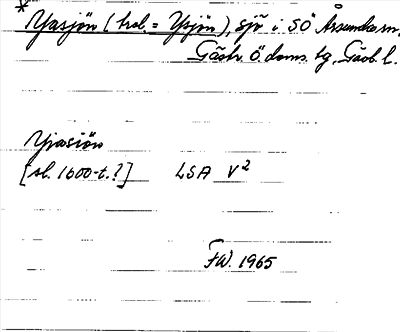 * Yxasjön (trol. = Yxsjön), sjö i SÖ Årsunda sn,
Gästr. Ö. doms. tg, Gävl. l.
Yxasiön
[sl. 1600-t.?] LSA V²
FW. 1965